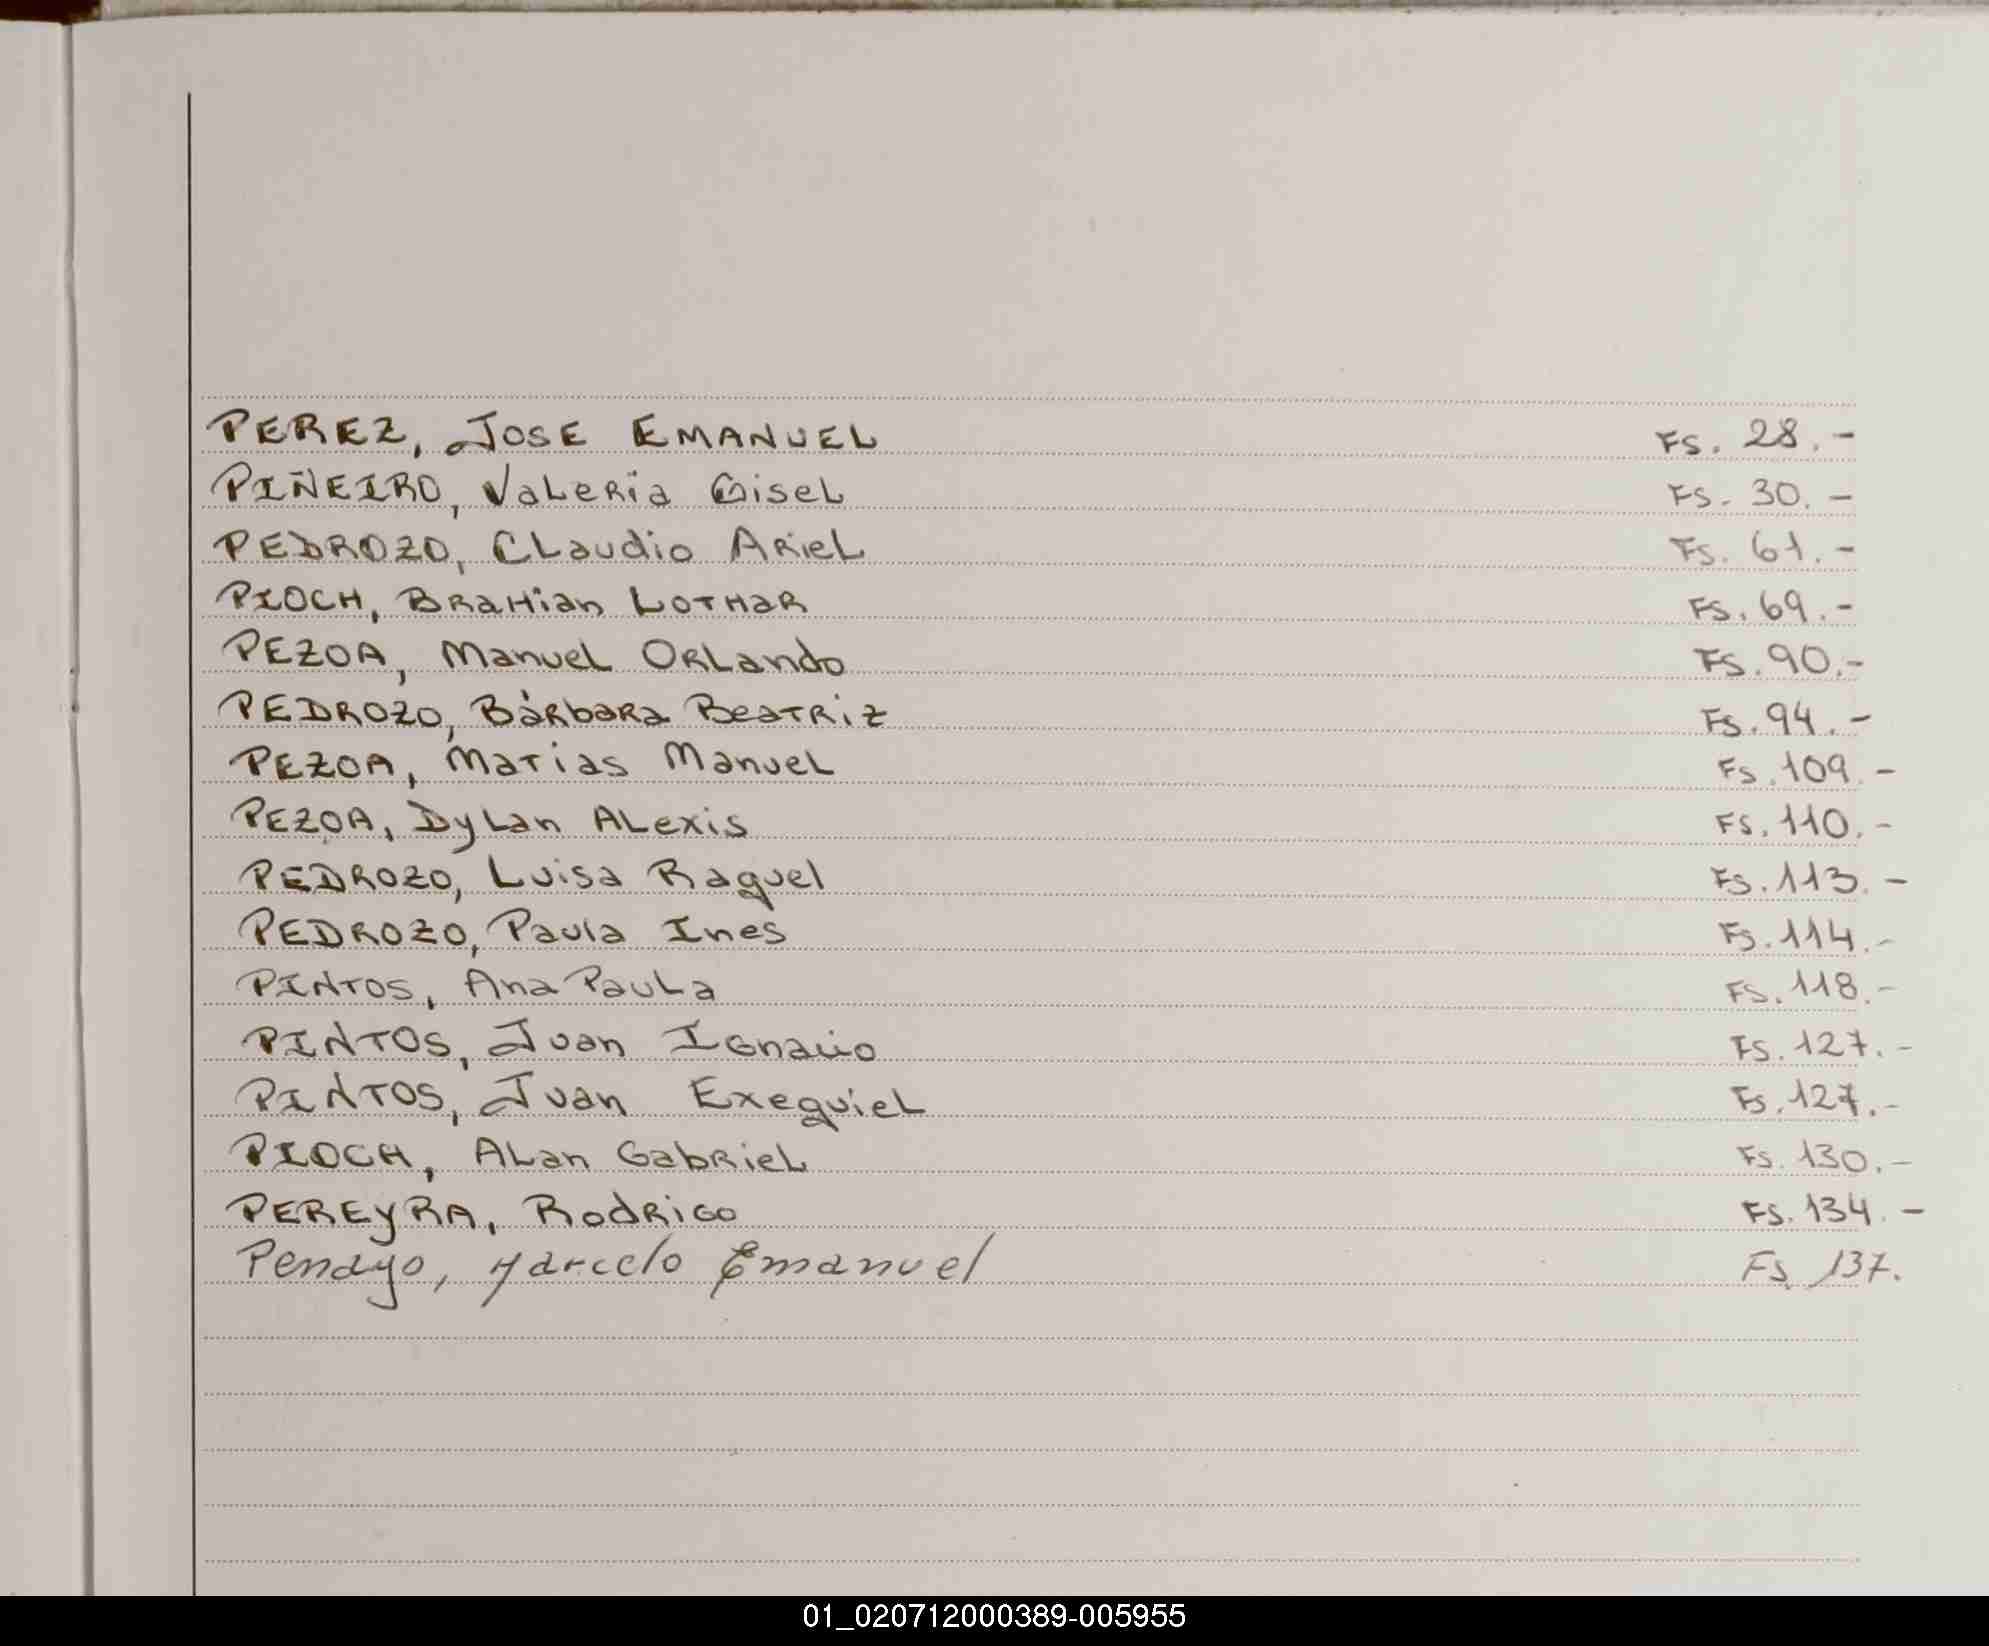 PEREZ, JOSE EMANUEL Fs. 28.-
PIÑEIRO, Valeria Gisel Fs. 30.-
PEDROZO, Claudio Ariel Fs. 61.-
PIOCH, Brahian Lothar Fs. 69.-
PEZOA, Manuel Orlando Fs. 90.-
PEDROZO, Bárbara Beatriz Fs. 94.-
PEZOA, Matias Manuel Fs. 109.-
PEZOA, Dylan Alexis Fs. 110.-
PEDROZO, Luisa Raquel Fs. 113.-
PEDROZO, Paula Ines Fs. 114.-
PINTOS, Ana Paula Fs. 118.-
PINTOS, Juan Ignacio Fs. 127.-
PINTOS, Juan Exequiel Fs. 127.-
PIOCH, Alan Gabriel Fs. 130.-
PEREYRA, Rodrigo Fs. 134.-
Penayo, Marcelo Emanuel Fs. 137.
01_020712000389-005955